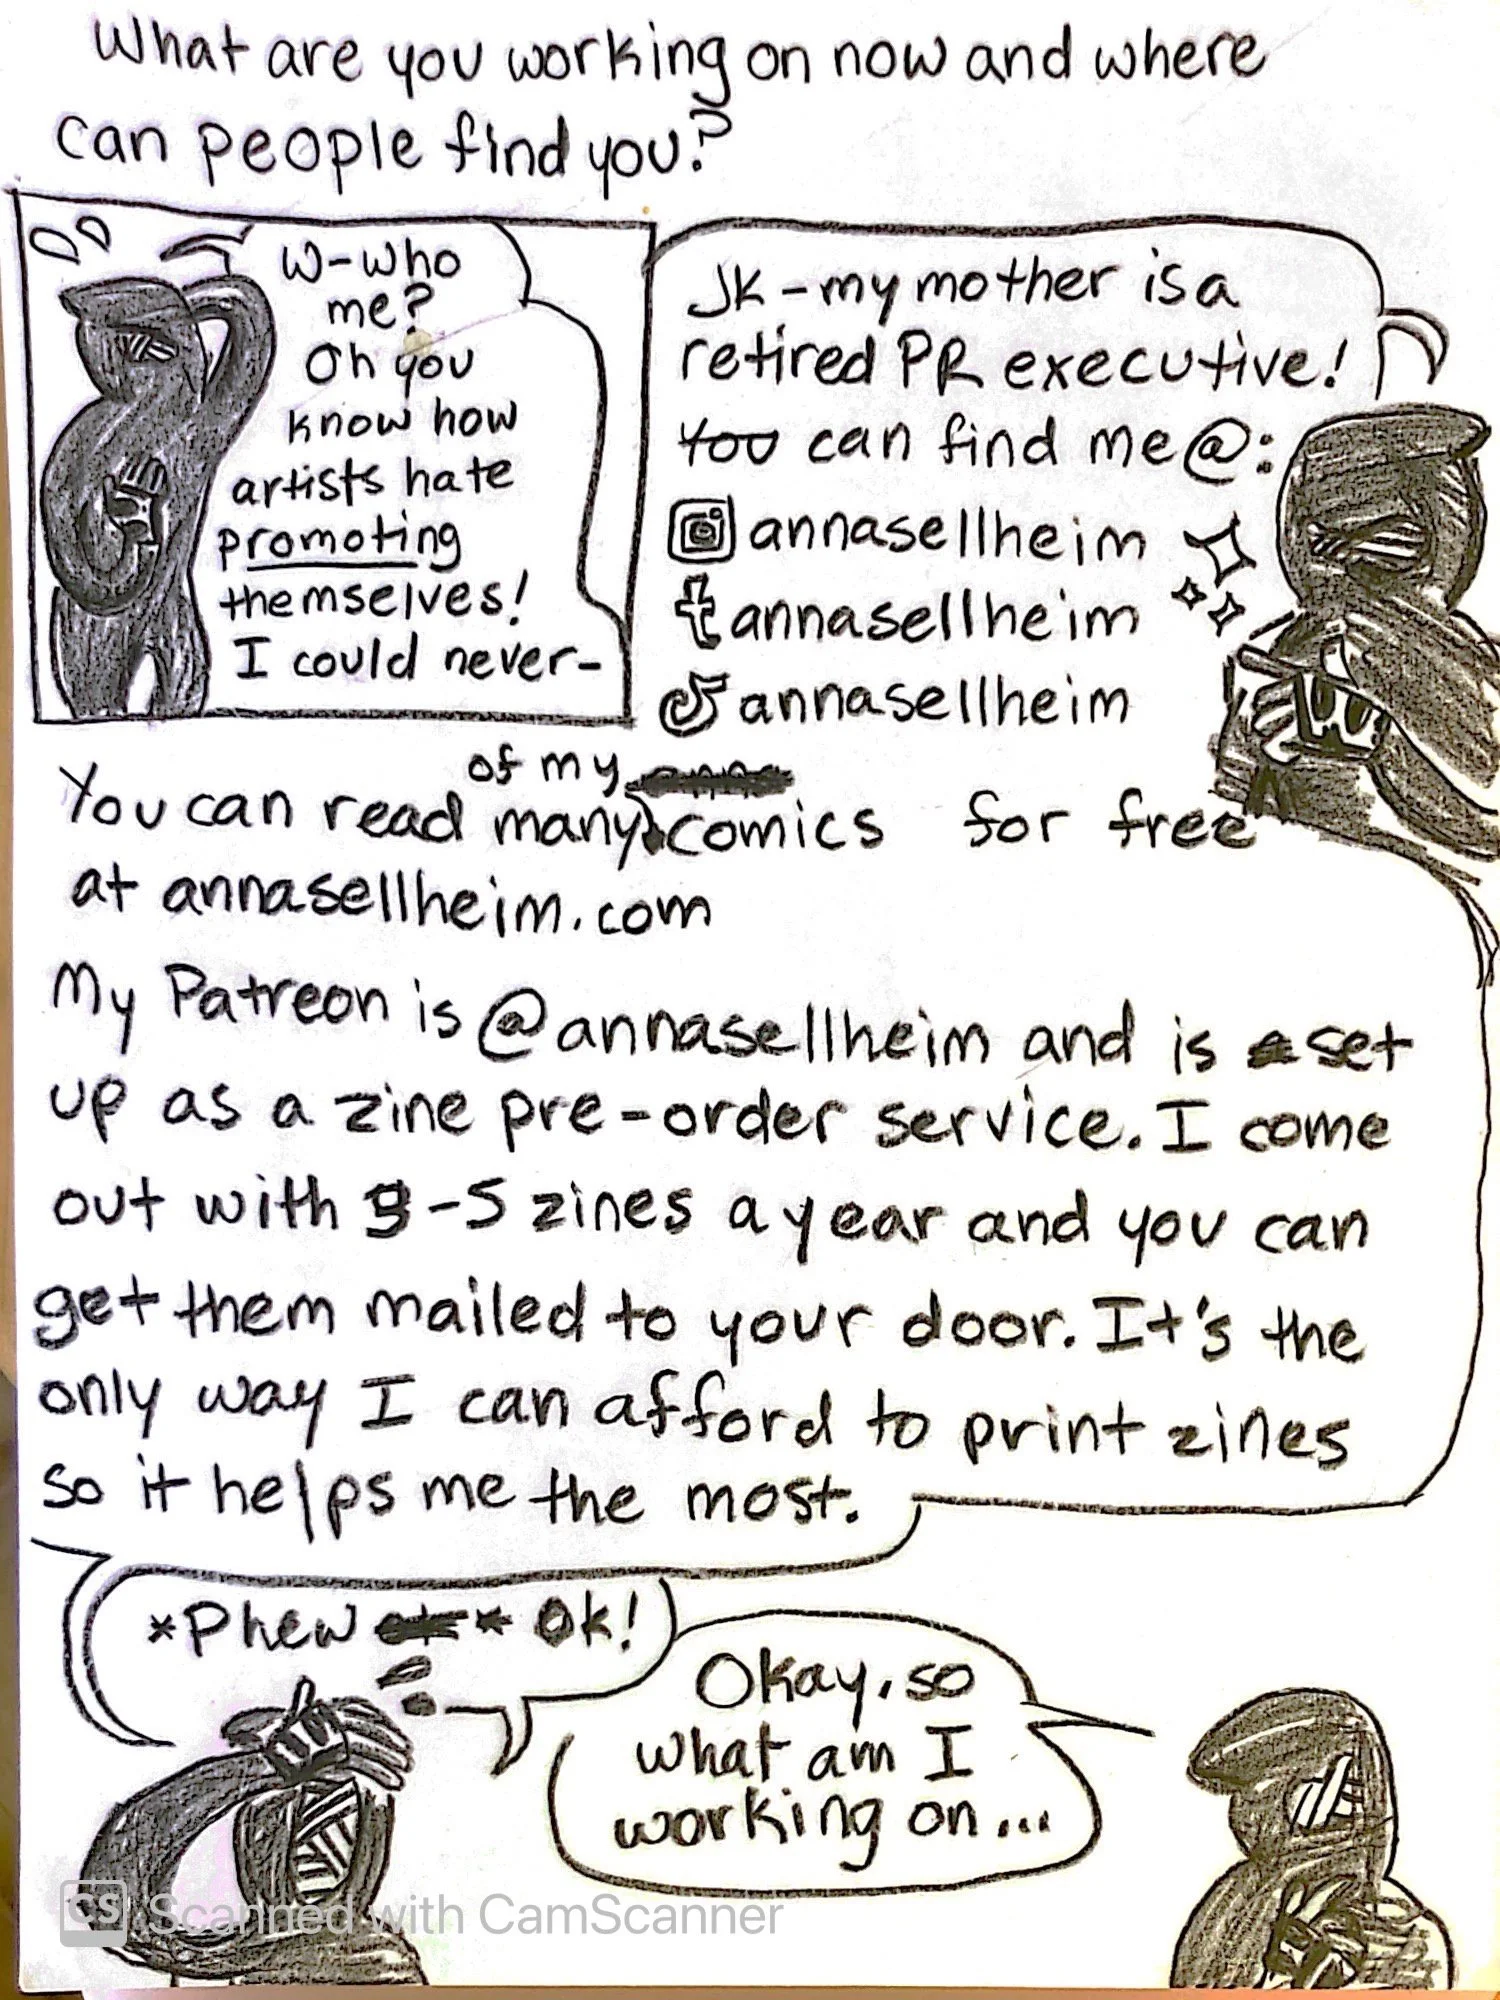 What are you working on now and where
can people find you?
W-who
me?
Oh you
know how
artists hate
promoting
themselves!
I could never-
JK-my mother is a
retired PR executive!
You can find me@:
annasellheim
annasellheim
annasellheim
of my
You can read many comics for free
at annasellheim.com
My Patreon is @annasellheim and is set
up as a zine pre-order service. I come
out with 3-5 zines a year and you can
get them mailed to your door. It's the
only way I can afford to print zines
so it helps me the most.
*Phew * Ok!
Okay, so
what am I
working on...
CS Scanned with CamScanner